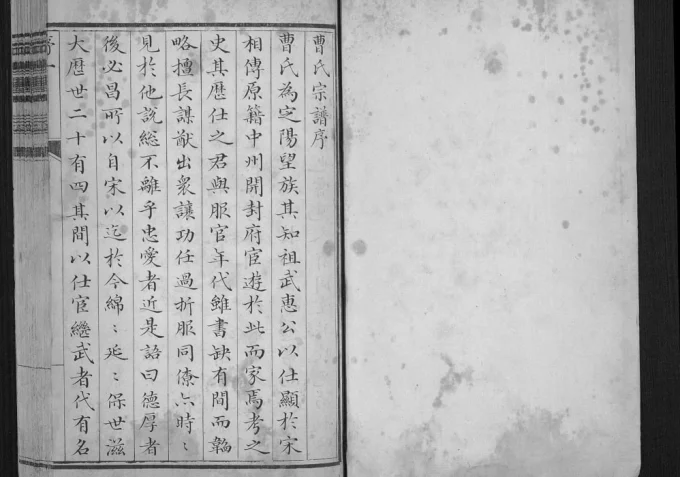 曹氏宗譜序
曹氏為定陽望族其知祖武惠公以仕顯於宋
相傳原籍中州開封府宦遊於此而家焉考之
史其歷仕之君與服官年代雖書缺有間而韜
略擅長謀猷出衆讓功任過折服同僚亦時〻
見於他說総不離乎忠愛者近是語曰德厚者
後必昌所以自宋以迄於今綿〻延〻保世滋
大歷世二十有四其間以仕宦繼武者代有名
序一